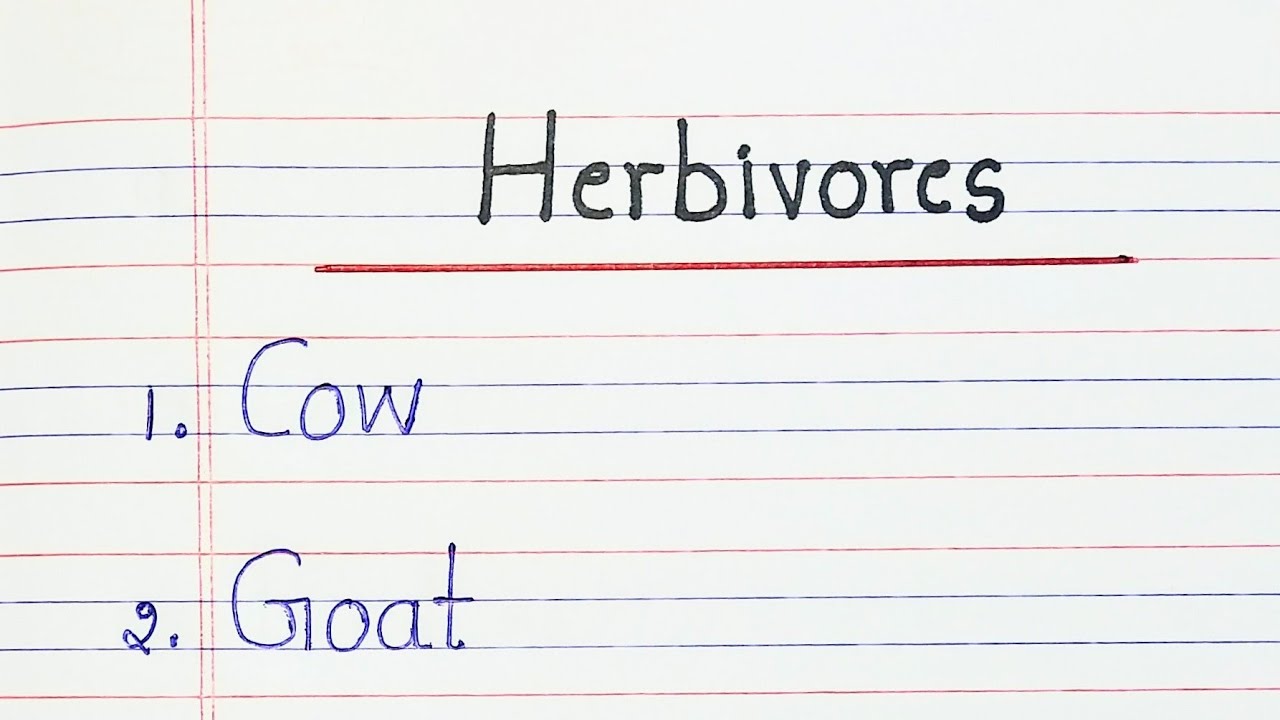 Herbivores
1. Cow
2. Goat